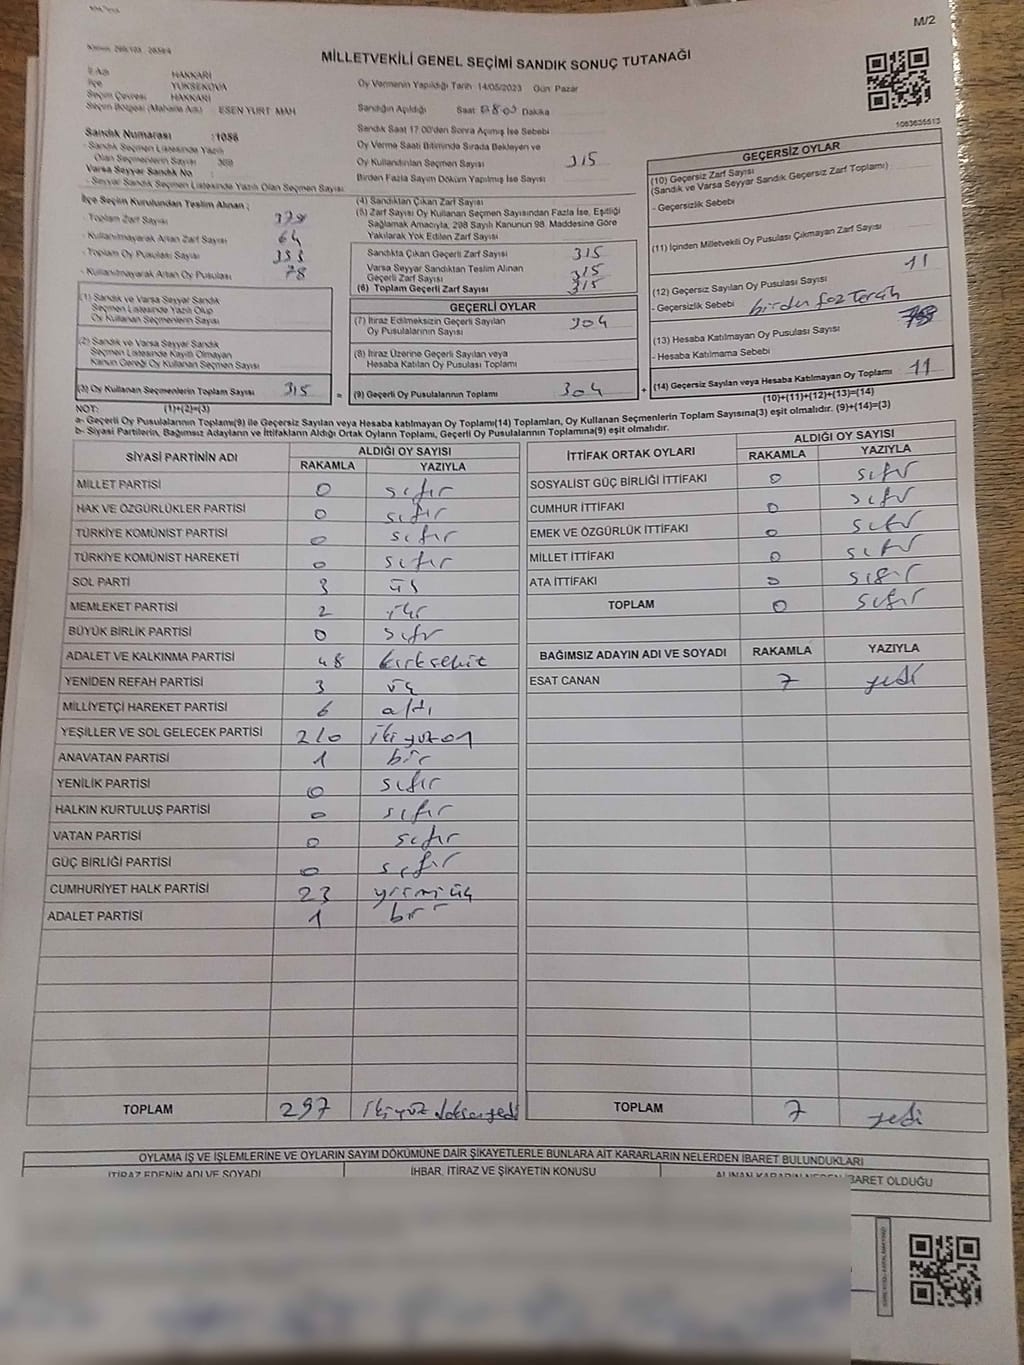 M/2
MİLLETVEKİLİ GENEL SEÇİMİ SANDIK SONUÇ TUTANAĞI
İl Adı HAKKARİ
İlçe YÜKSEKOVA
Seçim Çevresi HAKKARİ
Seçim Bölgesi (Mahalle Adı) ESEN YURT MAH
Sandık Numarası :1056
- Sandık Seçmen Listesinde Yazılı
Olan Seçmenlerin Sayısı 369
Varsa Seyyar Sandık No
- Seyyar Sandık Seçmen Listesinde Yazılı Olan Seçmen Sayısı
Oy Vermenin Yapıldığı Tarih 14/05/2023 Gün: Pazar
Sandığın Açıldığı Saat 0800 Dakika
Sandık Saat 17:00'den Sonra Açılmış İse Sebebi
Oy Verme Saati Bitiminde Sırada Bekleyen ve
Oy Kullandırılan Seçmen Sayısı 315
Birden Fazla Sayım Döküm Yapılmış İse Sayısı
1063635513
İlçe Seçim Kurulundan Teslim Alınan ;
- Toplam Zarf Sayısı 379
- Kullanılmayarak Artan Zarf Sayısı 64
- Toplam Oy Pusulası Sayısı 393
- Kullanılmayarak Artan Oy Pusulası 78
(1) Sandık ve Varsa Seyyar Sandık
Seçmen Listesinde Yazılı Olup
Oy Kullanan Seçmenlerin Sayısı
(2) Sandık ve Varsa Seyyar Sandık
Seçmen Listesinde Kayıtlı Olmayan
Kanun Gereği Oy Kullanan Seçmenlerin Sayısı
(3) Oy Kullanan Seçmenlerin Toplam Sayısı 315 =
(1)+(2)=(3)
(4) Sandıktan Çıkan Zarf Sayısı
(5) Zarf Sayısı Oy Kullanan Seçmen Sayısından Fazla İse, Eşitliği
Sağlamak Amacıyla, 298 Sayılı Kanunun 98. Maddesine Göre
Yakılarak Yok Edilen Zarf Sayısı
Sandıkta Çıkan Geçerli Zarf Sayısı 315
Varsa Seyyar Sandıktan Teslim Alınan
Geçerli Zarf Sayısı 315
(6) Toplam Geçerli Zarf Sayısı 315
GEÇERLİ OYLAR
(7) İtiraz Edilmeksizin Geçerli Sayılan
Oy Pusulalarının Sayısı 304
(8) İtiraz Üzerine Geçerli Sayılan veya
Hesaba Katılan Oy Pusulası Toplamı
(9) Geçerli Oy Pusulalarının Toplamı 304 +
GEÇERSİZ OYLAR
(10) Geçersiz Zarf Sayısı
(Sandık ve Varsa Seyyar Sandık Geçersiz Zarf Toplamı)
- Geçersizlik Sebebi
(11) İçinden Milletvekili Oy Pusulası Çıkmayan Zarf Sayısı
(12) Geçersiz Sayılan Oy Pusulası Sayısı 11
- Geçersizlik Sebebi birden faz tercih
(13) Hesaba Katılmayan Oy Pusulası Sayısı
- Hesaba Katılmama Sebebi
(14) Geçersiz Sayılan veya Hesaba Katılmayan Oy Toplamı 11
(10)+(11)+(12)+(13)=(14)
NOT:
a- Geçerli Oy Pusulalarının Toplamı(9) ile Geçersiz Sayılan veya Hesaba katılmayan Oy Toplamı(14) Toplamları, Oy Kullanan Seçmenlerin Toplam Sayısına(3) eşit olmalıdır. (9)+(14)=(3)
b- Siyasi Partilerin, Bağımsız Adayların ve İttifakların Aldığı Ortak Oyların Toplamı, Geçerli Oy Pusulalarının Toplamına(9) eşit olmalıdır.
SİYASİ PARTİNİN ADI ALDIĞI OY SAYISI
RAKAMLA YAZIYLA
MİLLET PARTİSİ 0 sıfır
HAK VE ÖZGÜRLÜKLER PARTİSİ 0 sıfır
TÜRKİYE KOMÜNİST PARTİSİ 0 sıfır
TÜRKİYE KOMÜNİST HAREKETİ 0 sıfır
SOL PARTİ 3 üç
MEMLEKET PARTİSİ 2 iki
BÜYÜK BİRLİK PARTİSİ 0 sıfır
ADALET VE KALKINMA PARTİSİ 48 kırksekiz
YENİDEN REFAH PARTİSİ 3 üç
MİLLİYETÇİ HAREKET PARTİSİ 6 altı
YEŞİLLER VE SOL GELECEK PARTİSİ 210 ikiyüzon
ANAVATAN PARTİSİ 1 bir
YENİLİK PARTİSİ 0 sıfır
HALKIN KURTULUŞ PARTİSİ 0 sıfır
VATAN PARTİSİ 0 sıfır
GÜÇ BİRLİĞİ PARTİSİ 0 sıfır
CUMHURİYET HALK PARTİSİ 23 yirmiüç
ADALET PARTİSİ 1 bir
TOPLAM 297 ikiyüz doksanyedi
İTTİFAK ORTAK OYLARI ALDIĞI OY SAYISI
RAKAMLA YAZIYLA
SOSYALİST GÜÇ BİRLİĞİ İTTİFAKI 0 sıfır
CUMHUR İTTİFAKI 0 sıfır
EMEK VE ÖZGÜRLÜK İTTİFAKI 0 sıfır
MİLLET İTTİFAKI 0 sıfır
ATA İTTİFAKI 0 sıfır
TOPLAM 0 sıfır
BAĞIMSIZ ADAYIN ADI VE SOYADI RAKAMLA YAZIYLA
ESAT CANAN 7 yedi
TOPLAM 7 yedi
OYLAMA İŞ VE İŞLEMLERİNE VE OYLARIN SAYIM DÖKÜMÜNE DAİR ŞİKAYETLERLE BUNLARA AİT KARARLARIN NELERDEN İBARET BULUNDUKLARI
İTİRAZ EDENİN ADI VE SOYADI İHBAR, İTİRAZ VE ŞİKAYETİN KONUSU ALINAN KARARIN NEDEN İBARET OLDUĞU